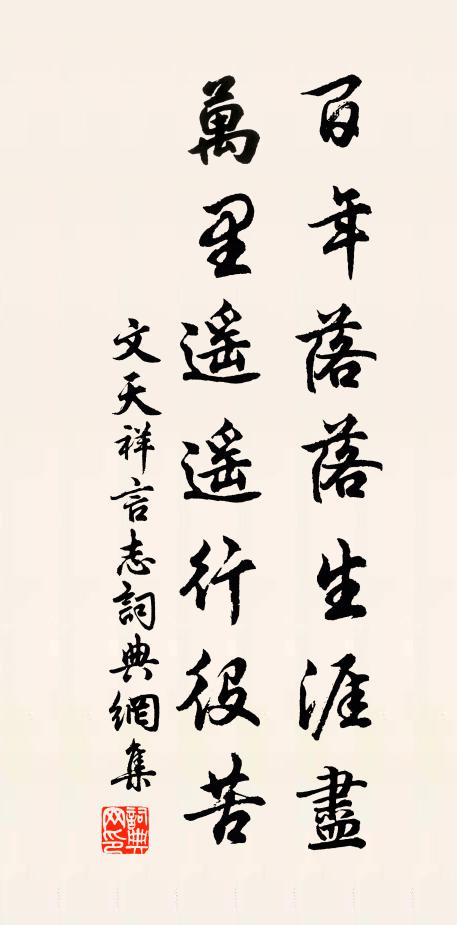 百年落落生涯盡
萬里遥遥行役苦
文天祥言志詞典網集
詞典網印